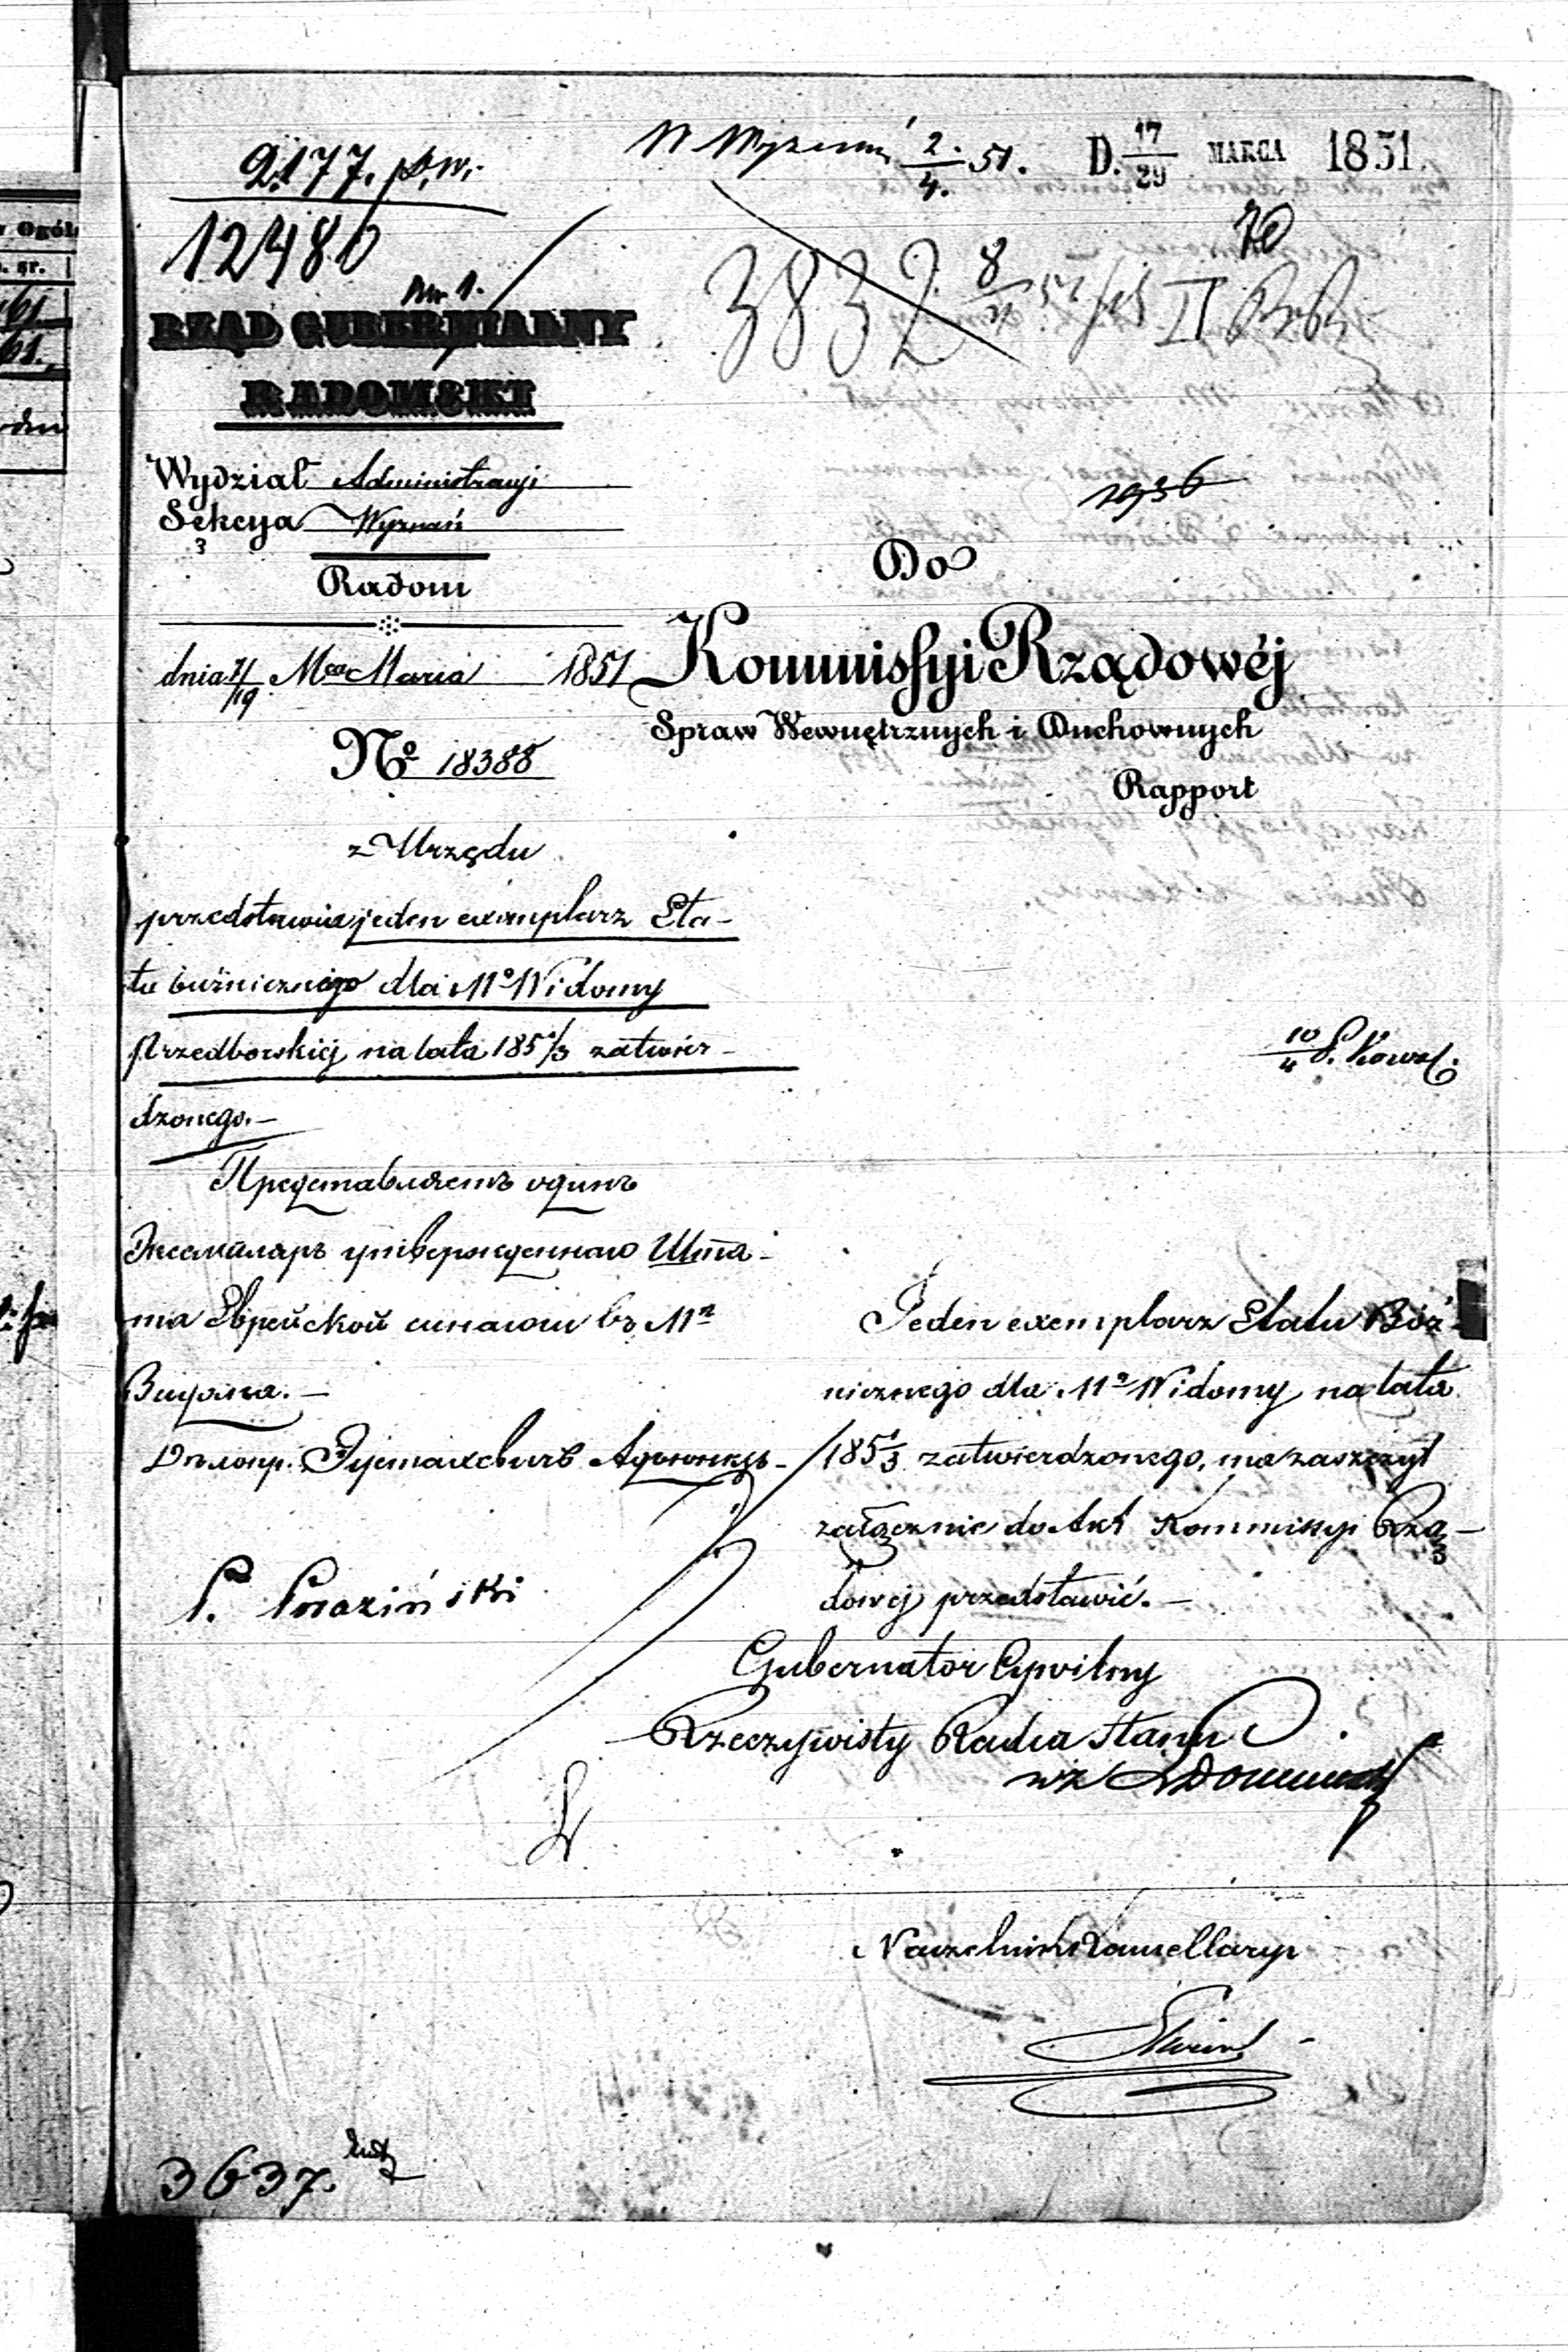 2177. p.w.
12480
W Wyznań 2/4. 51.
D. 17/29 MARCA 1851.
70
3832
8/4 51
Nr 1.
RZĄD GUBERNIALNY
RADOMSKI
Wydział Administracyi
Sekcya Wyznań
Radom
dnia 7/19 Mca Marca 1851
No 18388
1936
Do
Kommissyi Rządowéj
Spraw Wewnętrznych i Duchownych
Rapport
z Urzędu
przedstawia jeden exemplarz Eta-
tu bużnicznego dla Mo Widomy
Przedborskiej na lata 1851/3 zatwier-
dzonego.-
Представляетъ одинъ
Экземпляръ утвержденнаго Шта-
та Еврейской синагоги въ Ма
Видома.-
10/4 P. Kowal.
Jeden exemplarz Etatu Boż-
nicznego dla Ma Widomy na lata
1851/3 zatwierdzonego, ma zaszczyt
załącznie do Akt Kommissyi Rzą-
dowej przedstawić.-
Gubernator Cywilny
Rzeczywisty Radca Stanu
wz
Naczelnik Kancellaryi
3637.